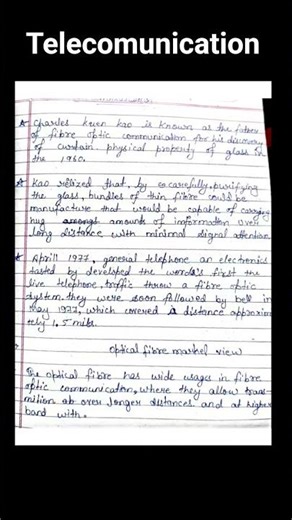 Telecomunication
* Charles kuen kao is known as the father
of fibre optic communication for his discovery
of curtain physical property of glass in
the 1960.
* Kao relized that, by carefully purifying
the glass, bundles of thin fibre could be
manufacture that would be capable of carrying
hug amounts of information over
long distance with minimal signal attention
* Aprill 1977, general telephone an electronics
tasted by developed the world's first the
live telephone traffic throw a fibre optic
system. they were soon followed by bell in
may 1977, which covered a distance approxim
tely 1.5 miles.
optical fibre market view
The optical fibre has wide usages in fibre
optic communication, where they allow trans-
mition ob over longer distances and at higher
band with.